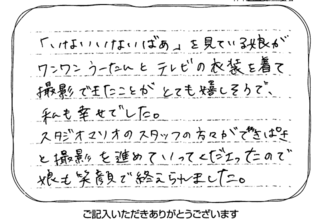 「いないいないばあ」を見ている娘が
ワンワンうーたんとテレビの衣装を着て
撮影できたことがとても嬉しそうで、
私も幸せでした。
スタジオマリオのスタッフの方々がてきぱき
と撮影を進めていってくださったので
娘も笑顔で終えられました。
ご記入いただきありがとうございます